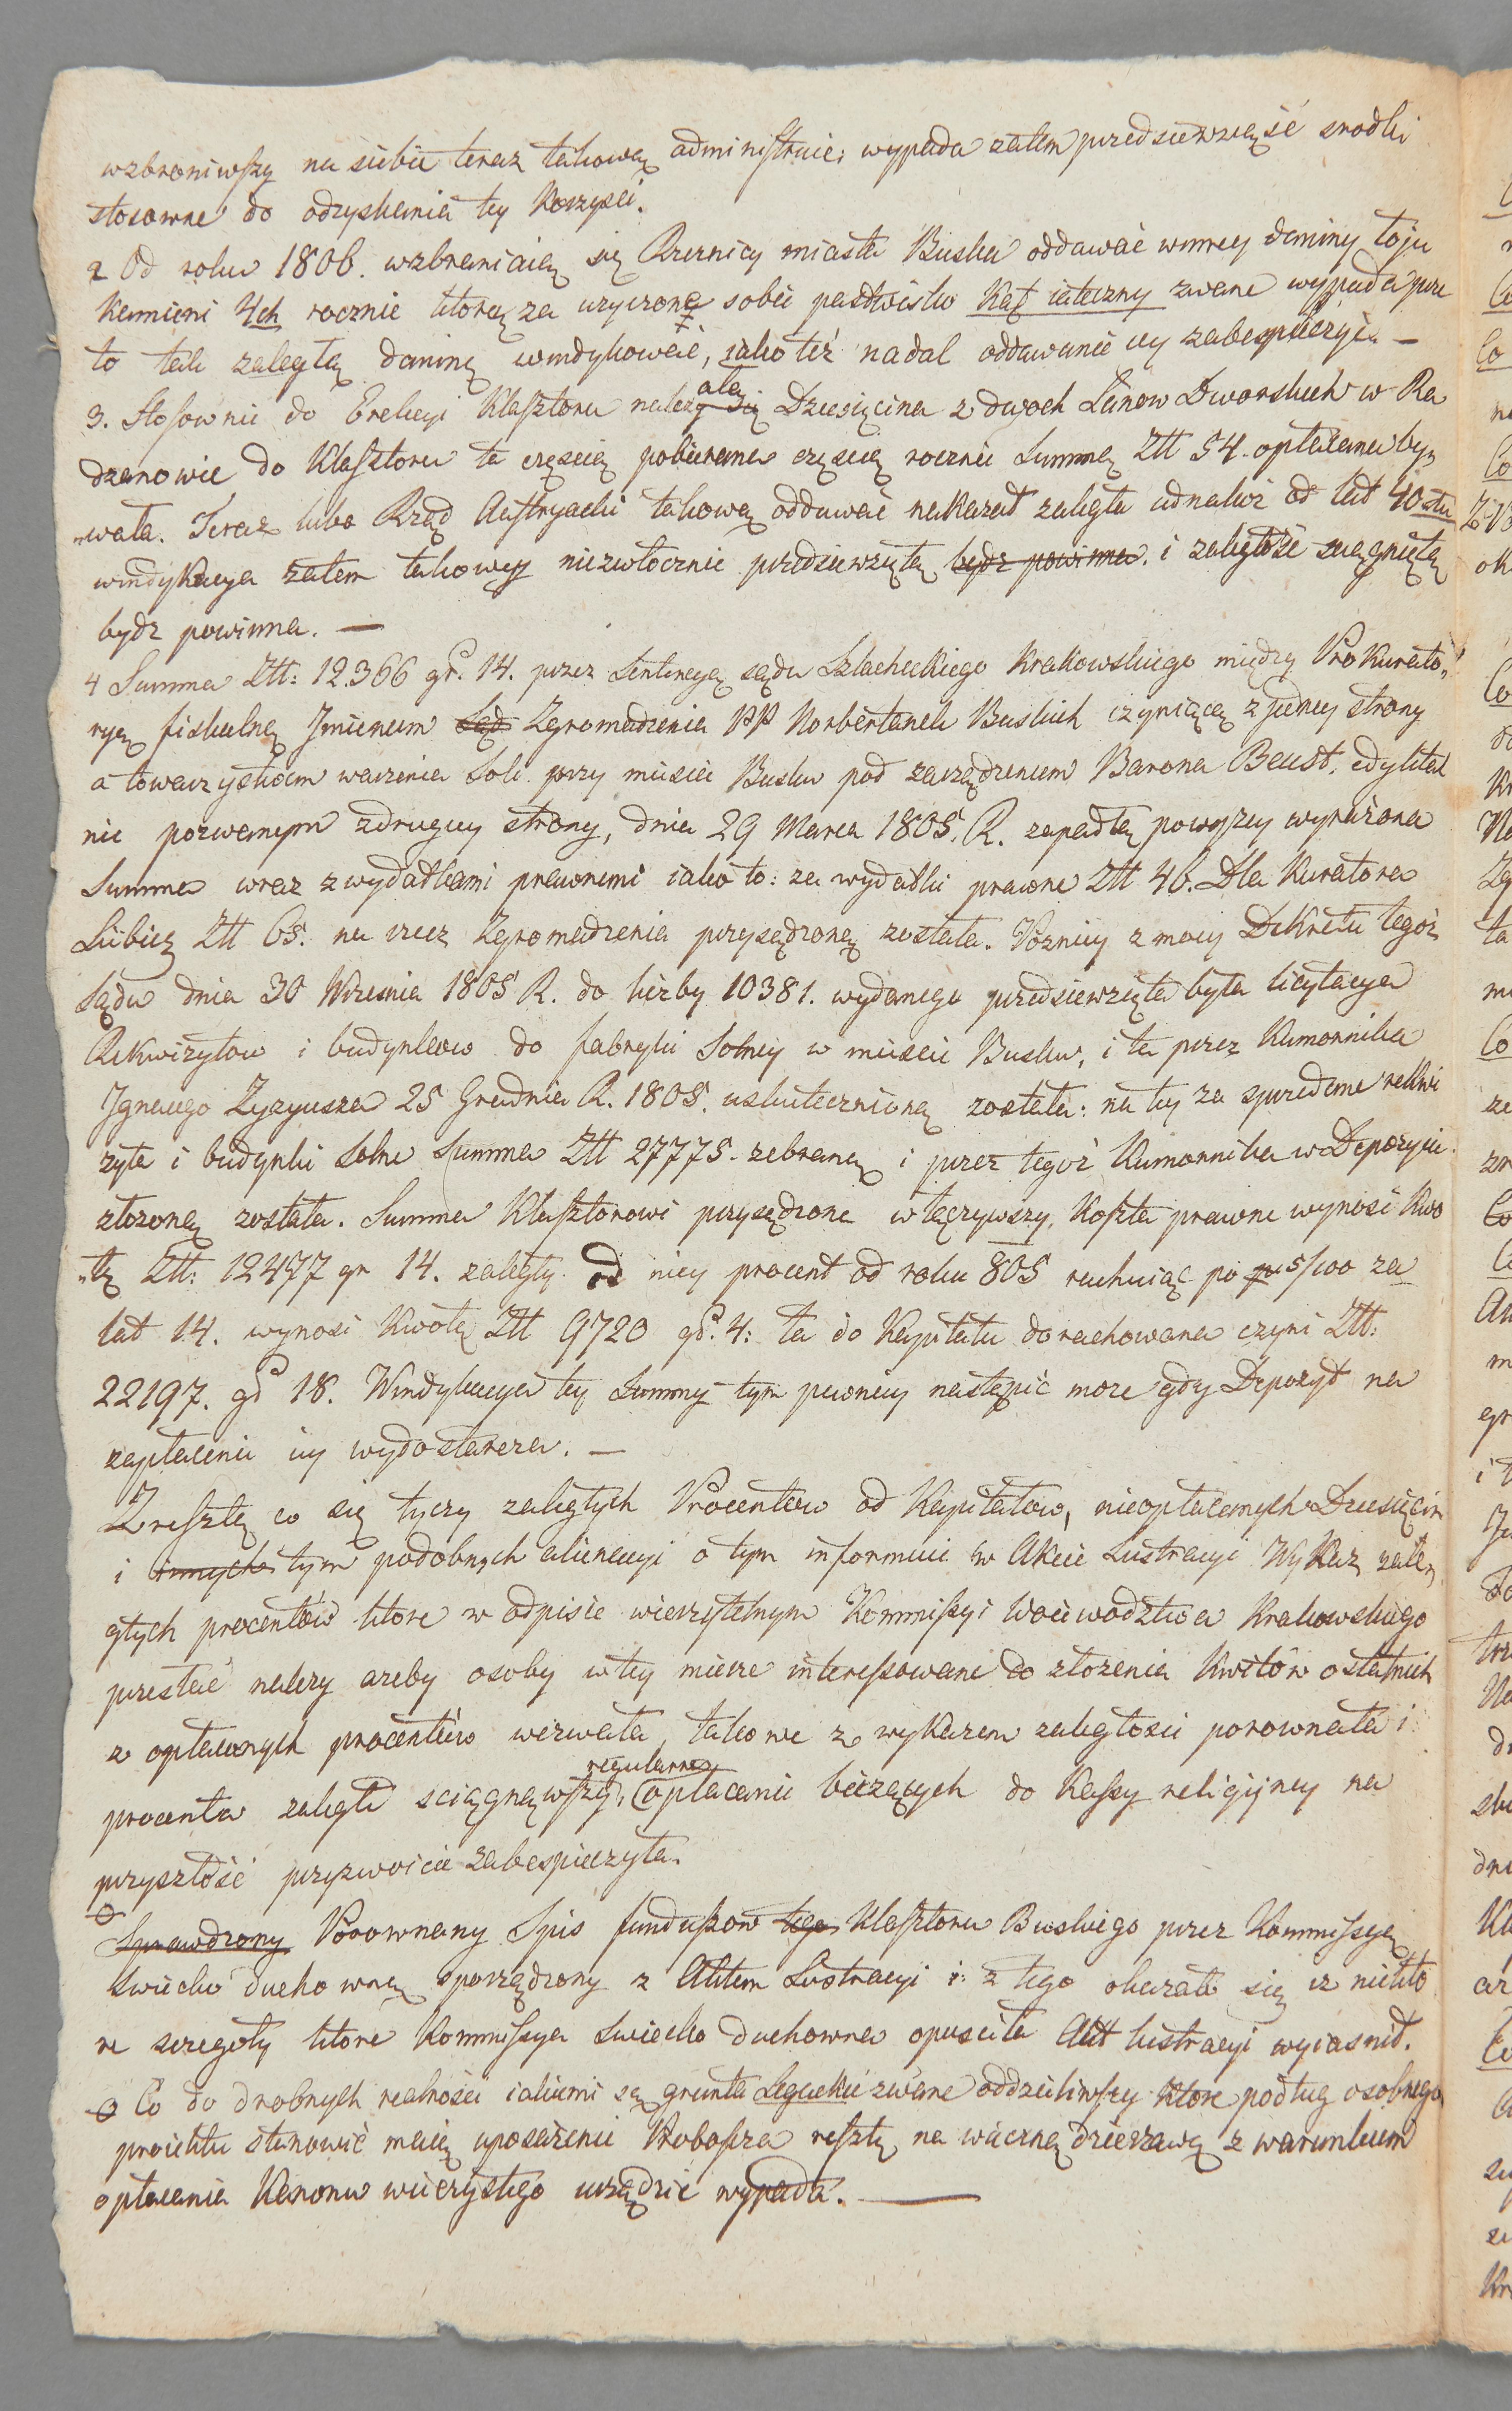 wzbroniwszy na siebie teraz takową administruie; wypada zatem przedsiewziąść srodki
stosowne do odzyskania tey korzysci.
2 Od roku 1806. wzbraniaią się Rzeznicy miasta Buska oddawać winney daniny łoju
kamieni 4ch rocznie którą za uzyczone sobie pastwisko Kąt iateczny zwane wypada prze
to tak zaległą daninę windykować, iako też nadal oddawanie iey zabespieczyć. —
3. Stosownie do Erekcyi Klasztoru należała się Dziesięcina z dwoch Łanow Dworskich w Ra
dzanowie do Klasztoru ta częscią pobierana częscią rocznie Summą Ztt 54. opłacana by„
„wała. Teraz lubo Rząd Austryacki takową oddawać nakazał zaległa iednakoż od lat 40stu
windykacya zatem takowey niezwłocznie przedsiewziętą bydz powinna. i zaległość sciągniętą
bydz powinna. —
4 Summa Ztt: 12.366 gr. 14. przez Sentencyą sądu Szlacheckiego Krakowskiego między Prokurato„
ryą fiskalną Jmieniem Sąd Zgromadzenia PP Norbertanek Buskich czyniącą z jedney strony
a towarzystwem warzenia Soli przy miescie Busku pod zarządzeniem Barona Beust, edyktal
nie pozwanym zdrugiey strony, dnia 29 Marca 1805. R. zapadłą powyzey wyrażona
Summa wraz z wydatkami prawnemi iako to: za wydatki prawne Ztt 46. Dla Kuratora
Lubicz Ztt 65. na rzecz Zgromadzenia przysądzoną została. Pozniey z mocy Dekretu tegoż
Sądu dnia 30 Wrzesnia 1805 R. do liczby 10381. wydanego przedsiewzięta była licytacya
Rekwizytow i budynkow do fabryki Solney w miescie Busku, i ta przez Komornika
Jgnacego Zyzyusza 25 Grudnia R. 1805. uskutecznioną została: na tey za sprzedane rekwi
zyta i budynki Solne Summa Ztt 27775. zebraną i przez tegoż Komornika w Depozycie
złozoną została. Summa Klasztorowi przysądzona włączywszy Koszta prawne wynosi kwo
„tę Ztt: 12477 gr 14. zaległy od niey procent od roku 805 rachuiąc po 5/100 za
lat 14. wynosi kwotę Ztt 9720 gr. 4: ta do Kapitału dorachowana czyni Ztt:
22197. gr 18. Windykacya tey Summy tym pewniey nastąpić moze gdy Depozyt na
zapłacenie iey wydostarcza. —
Zresztą co się tyczy zaległych Procentow od Kapitałow, nieopłacanych Dziesięcin
i innych tym podobnych alienacyi o tym informuie w Akcie Lustracyi Wykaz zale„
głych procentów ktore w odpisie wierzytelnym Kommissyi Woiewodztwa Krakowskiego
przesłać nalezy azeby osoby w tey mierze interessowane do złozenia Kwitów ostatnich
z opłaconych procentów wezwała, takowe z wykazem zaległosci porownała i
procenta zaległe sciągnąwszy, regularne opłacanie bieżących do Kassy religijney na
przyszłość przyzwoicie zabespieczyła.
Sprawdzony Porownany Spis funduszow tego Klasztoru Buskiego przez Kommissyą
Swiecko duchowną sporządzony z Aktem Lustracyi i: z tego okazało się iz niekto
re szczegoły ktore Kommissya Swiecko duchowna opusciła Akt lustracyi wyiasnił.
Co do drobnych realnosci iakiemi są grunta Leguckie zwane oddzieliwszy ktore podług osobnego
proiektu stanowić maią uposażenie Proboszcza resztę na wieczną dzierzawę z warunkiem
opłacania Kanonu wieczystego urządzić wypada. —